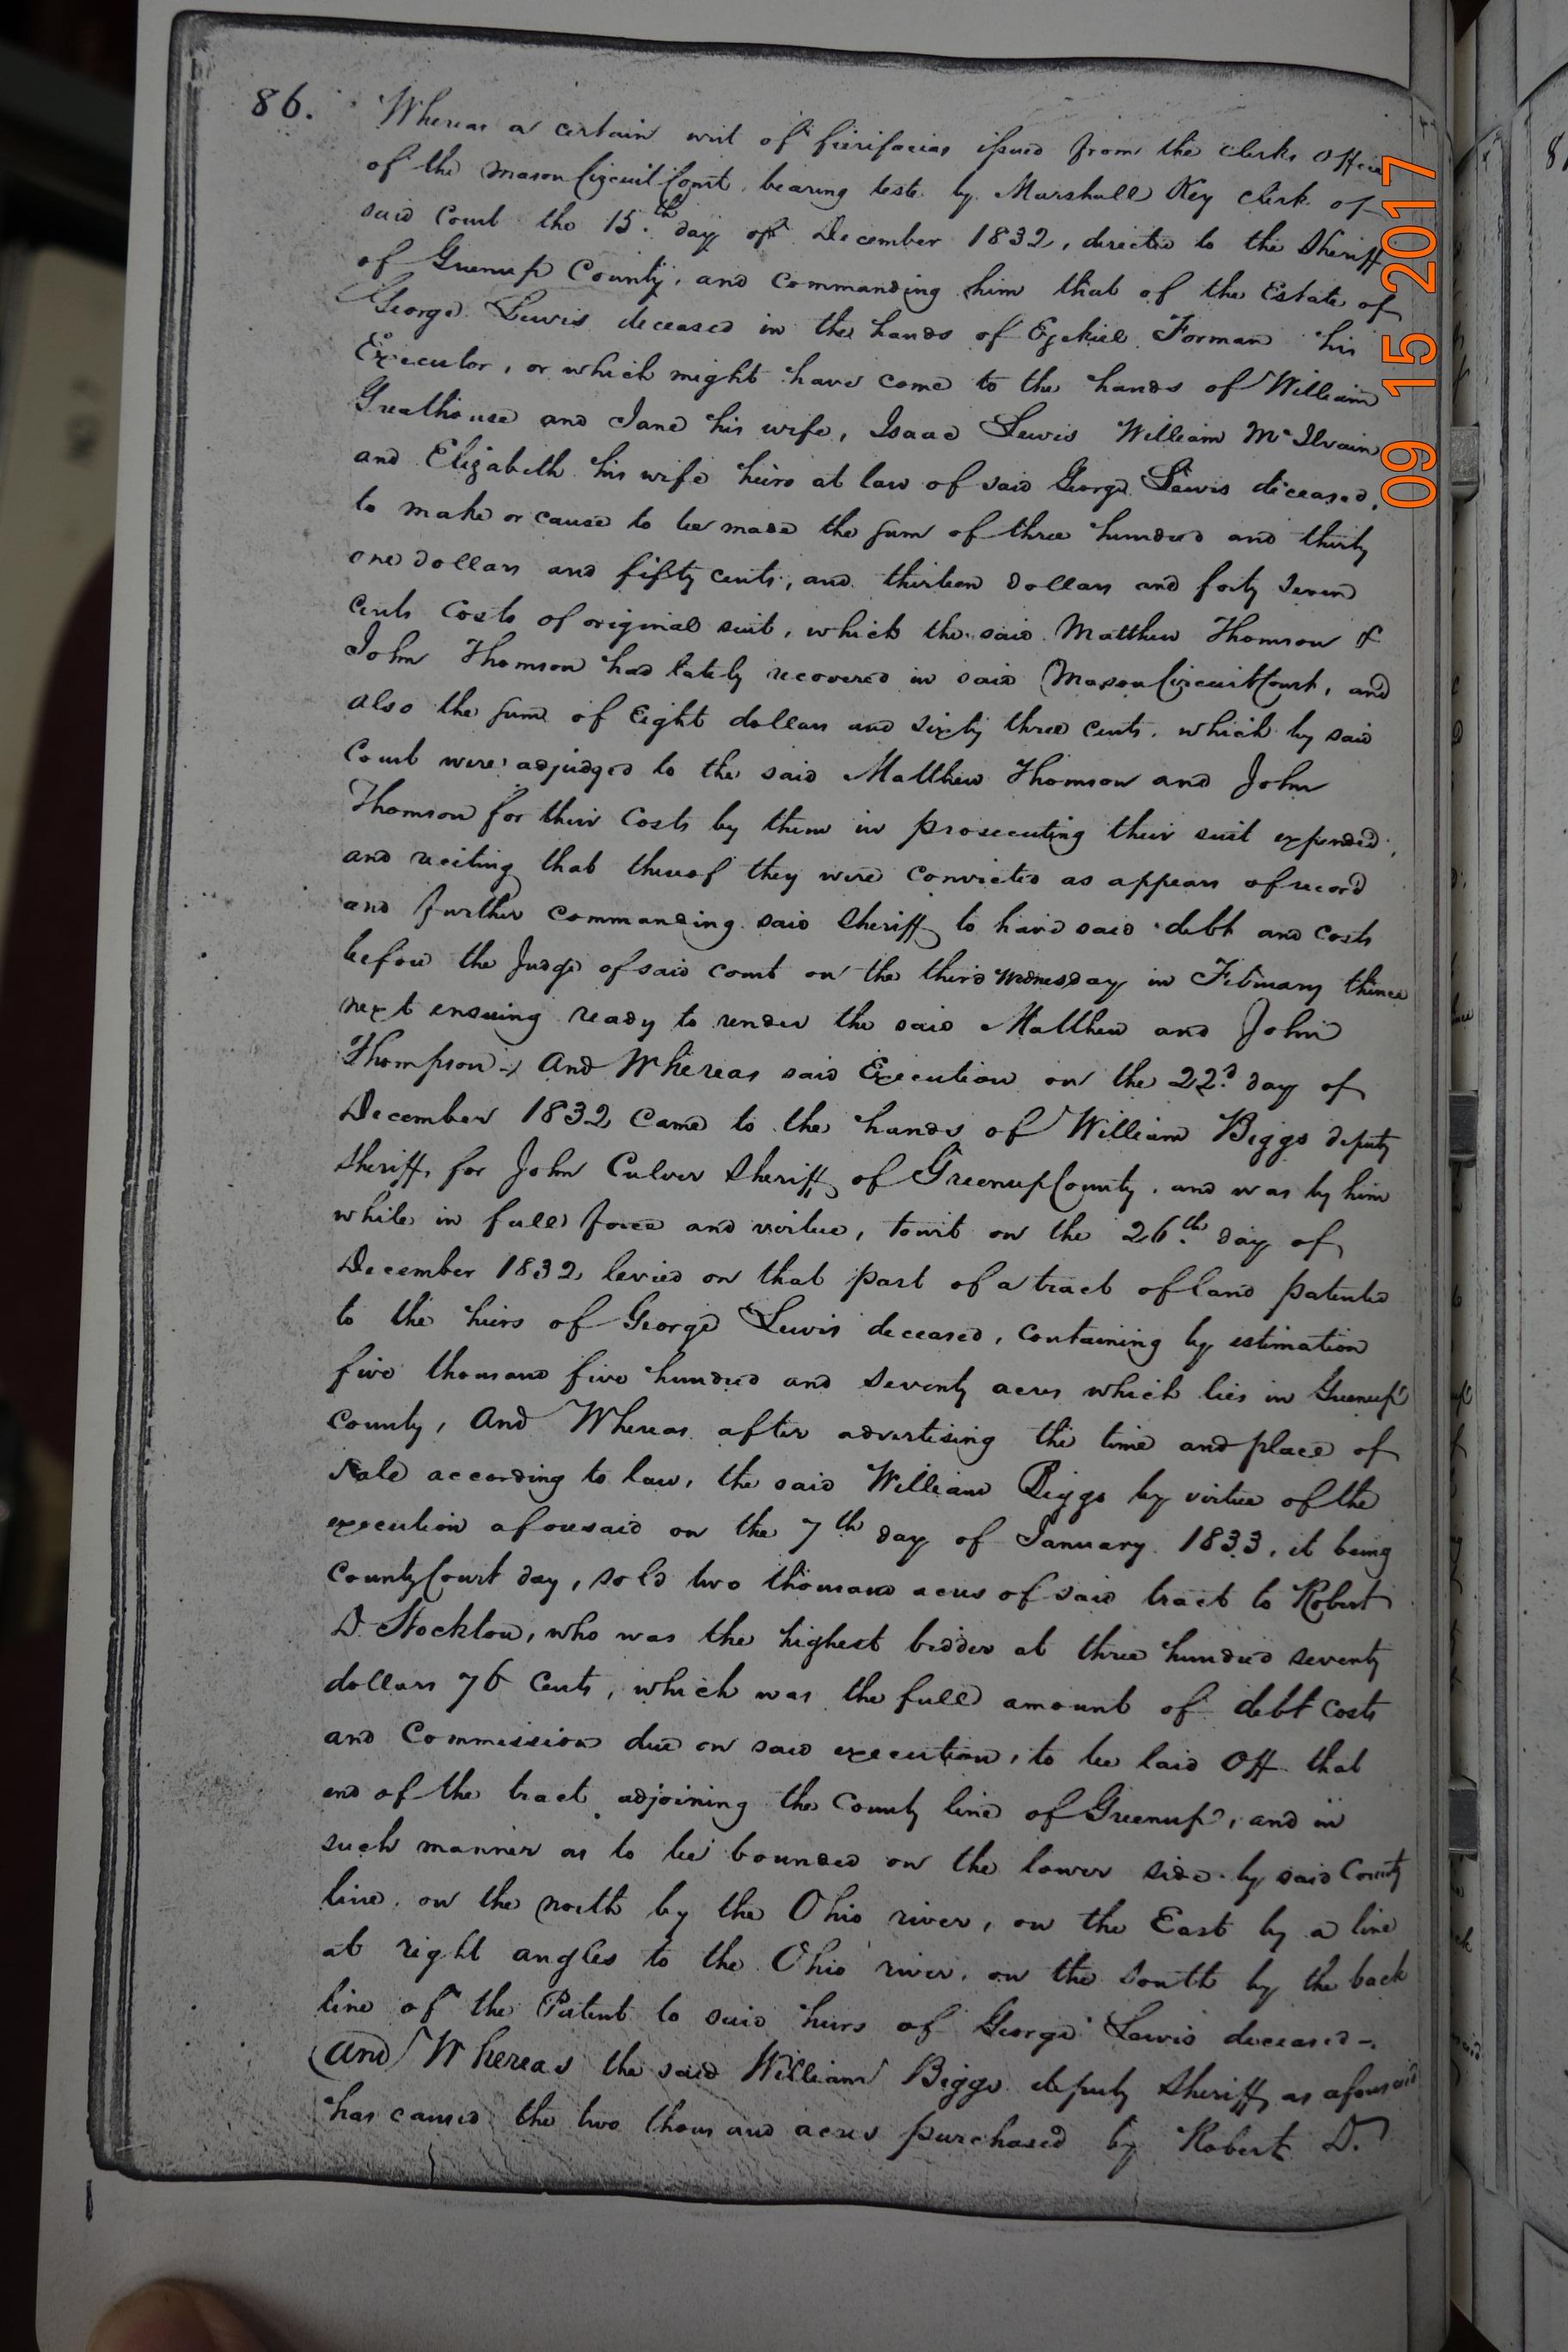 86.
Whereas a certain writ of fierifacias issued from the clerks Office
of the Mason Circuit Court, bearing teste by Marshall Key clerk of
said Court the 15th day of December 1832, directed to the Sheriff
of Greenup County, and commanding him that of the Estate of
George Lewis deceased in the hands of Ezekiel Forman his
Executor, or which might have come to the hands of William
Greathouse and Jane his wife, Isaac Lewis William McIlvain
and Elizabeth his wife heirs at law of said George Lewis deceased,
to make or cause to be made the sum of three hundred and thirty
one dollars and fifty cents, and thirteen dollars and forty seven
cents Costs of original suit, which the said Matthew Thomson &
John Thomson had lately recovered in said Mason Circuit Court, and
also the sum of Eight dollars and sixty three cents. which by said
Court were adjudged to the said Matthew Thomson and John
Thomson for their Costs by them in prosecuting their suit expended,
and reciting that thereof they were convicted as appears of record
and further commanding said Sheriff to have said debt and costs
before the Judge of said court on the third Wednesday in February thence
next ensuing ready to render the said Matthew and John
Thompson - And Whereas said Execution on the 22d day of
December 1832 Came to the hands of William Biggs deputy
Sheriff for John Culver Sheriff of Greenup County, and was by him
while in full force and virtue, towit on the 26th day of
December 1832 levied on that part of a tract of land patented
to the heirs of George Lewis deceased, containing by estimation
five thousand five hundred and seventy acres which lies in Greenup
County, And Whereas after advertising the time and place of
Sale according to law, the said William Biggs by virtue of the
execution aforesaid on the 7th day of January 1833, it being
County Court day, sold two thousand acres of said tract to Robert
D. Stockton, who was the highest bidder at three hundred seventy
dollars 76 Cents, which was the full amount of debt costs
and Commission due on said execution, to be laid Off that
end of the tract adjoining the County line of Greenup, and in
such manner as to be bounded on the lower side by said County
line, on the north by the Ohio river, on the East by a line
at right angles to the Ohio river, on the South by the back
line of the Patent to said heirs of George Lewis deceased -
And Whereas the said William Biggs deputy Sheriff as aforesaid
has caused the two thousand acres purchased by Robert D.
09 15 2017